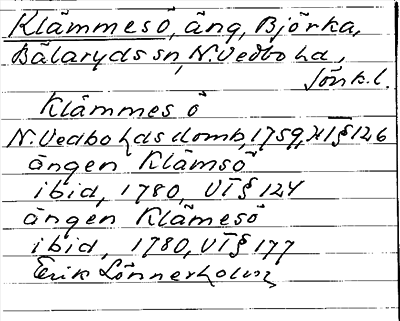 Klämmesö, äng, Björka,
Bälaryds sn, N. Vedbo hd,
Jönk.l.
Klämmes ö
N. Vedbo hds domb, 1759, XI § 126
ängen Klämsö
ibid, 1780, VI § 124
ängen Klämesö
ibid, 1780, VI § 177
Erik Lönnerholm